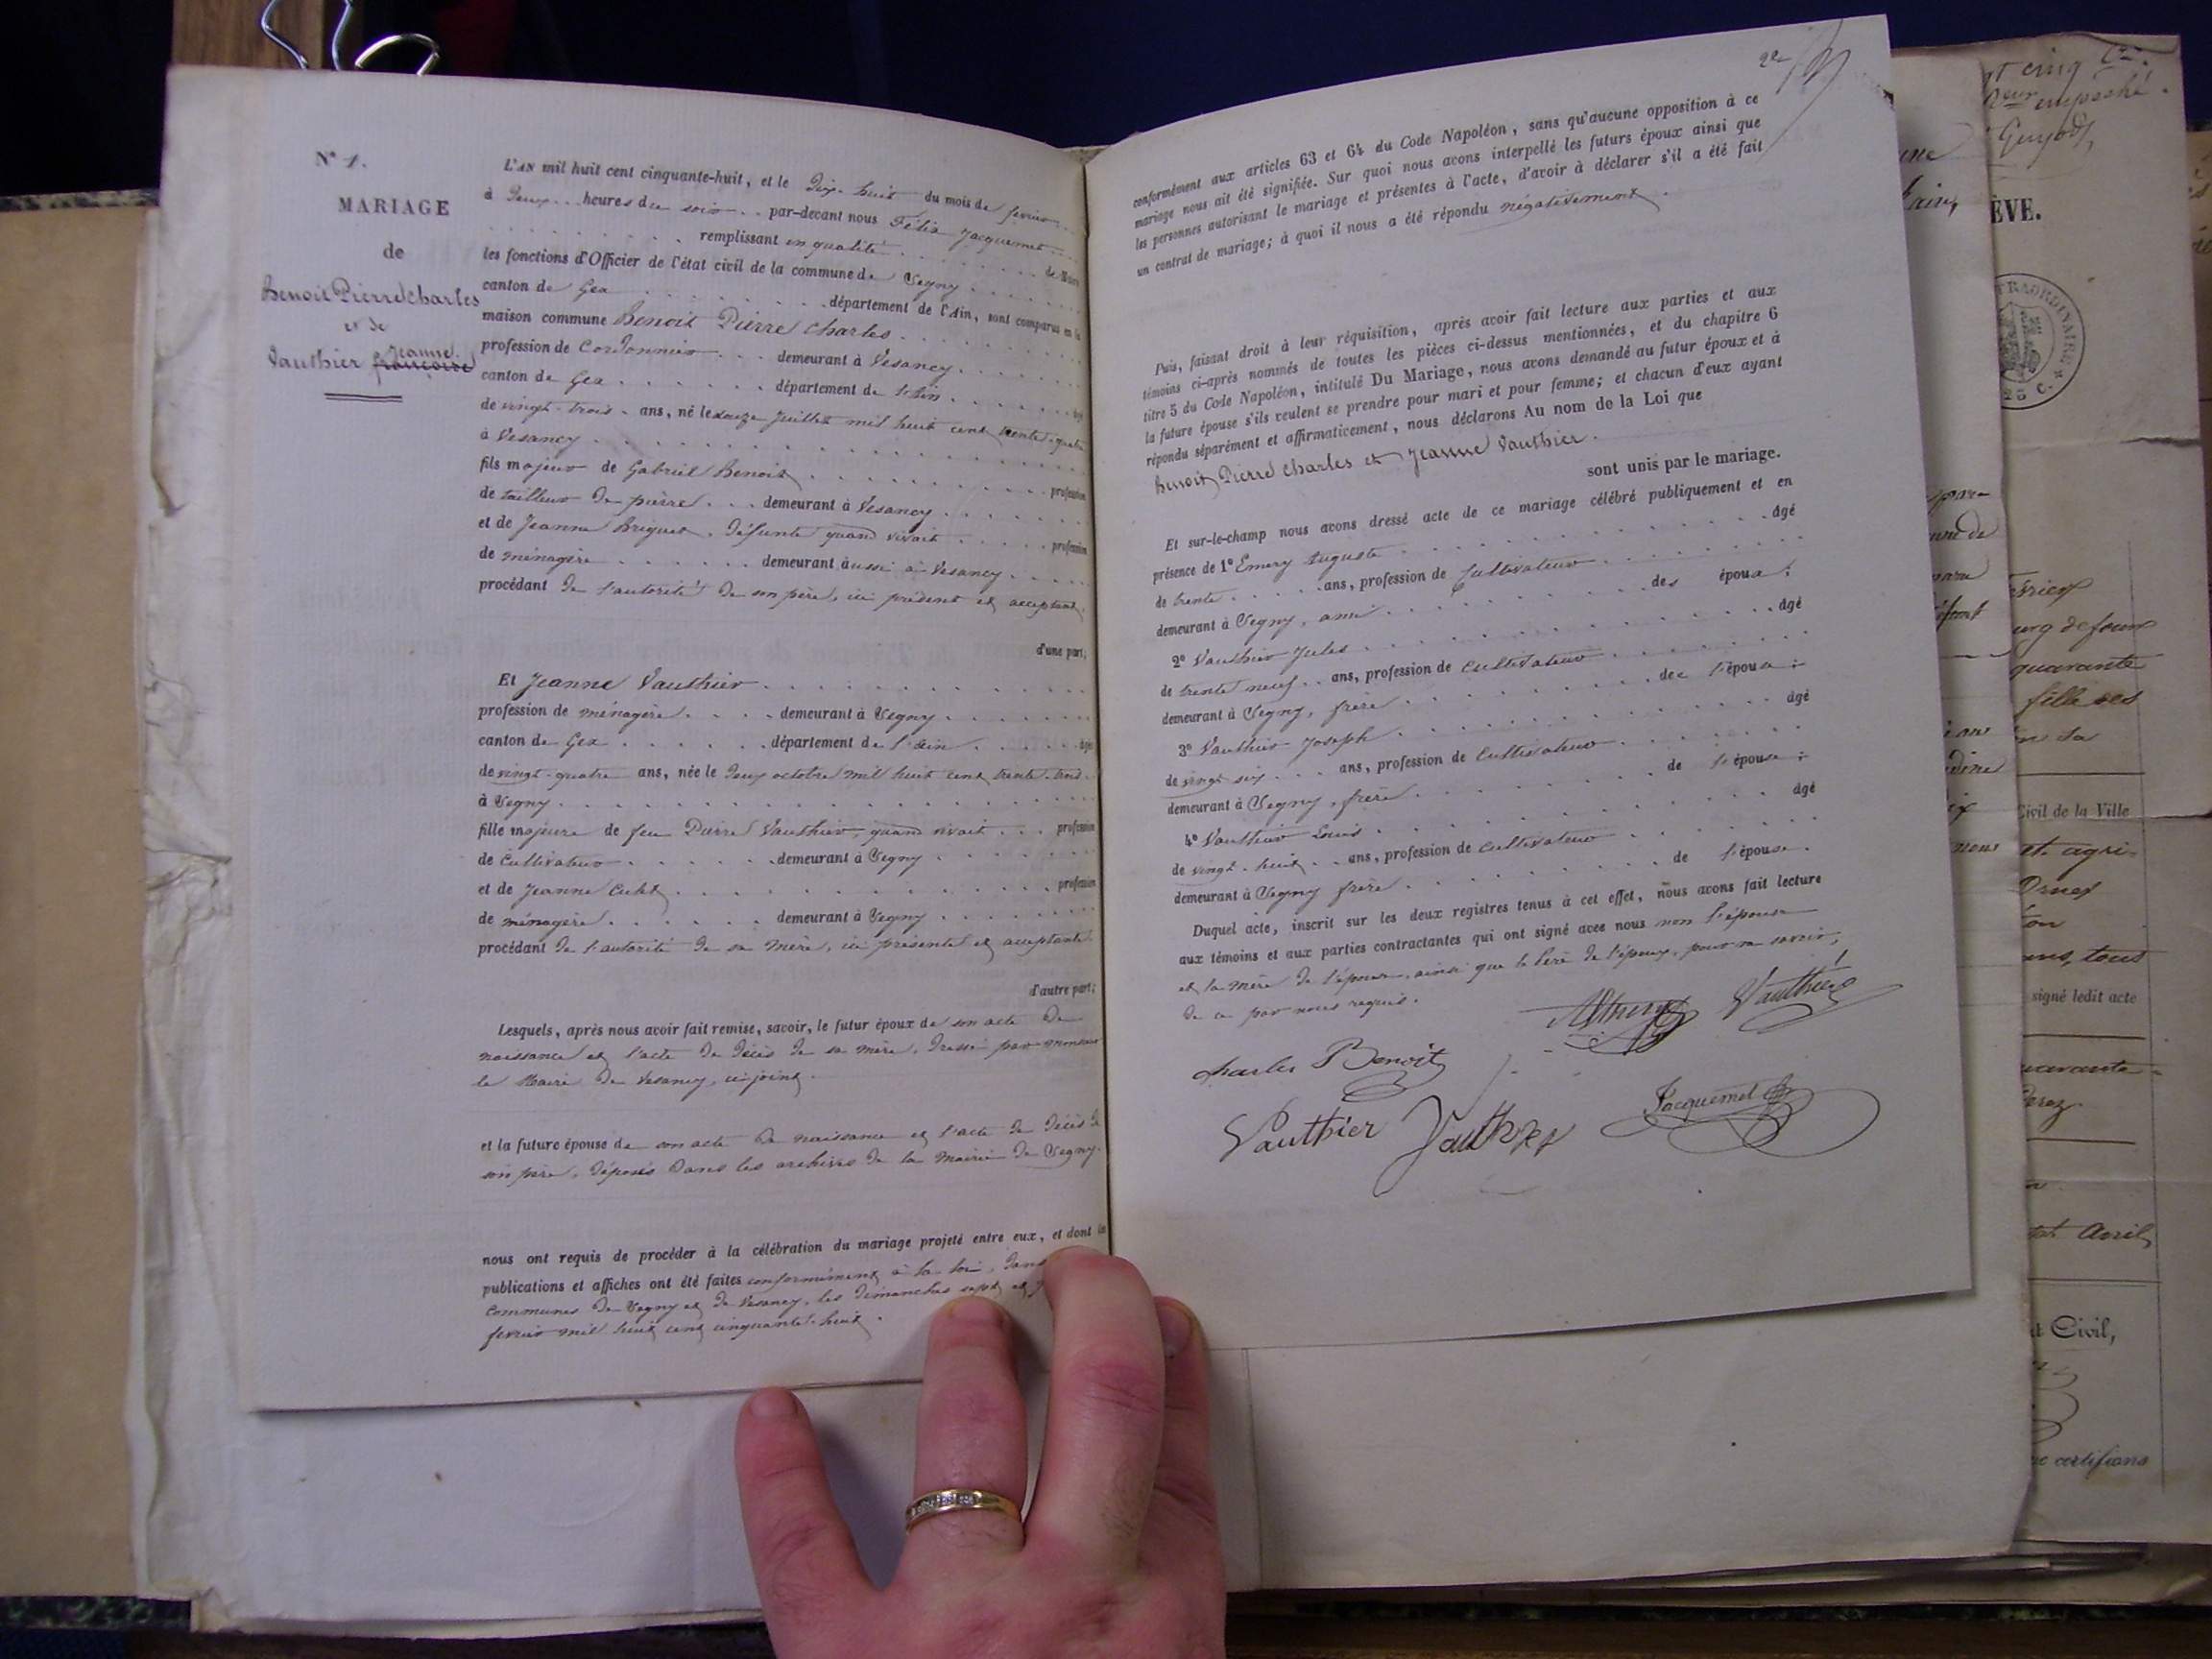 N° 1.
MARIAGE
de
Benoit Pierre Charles
et de
Jeanne
Vauthier françoise
L'AN mil huit cent cinquante-huit, et le Dix-huit du mois de fevrier
à Deux heures du soir par-devant nous Félix Jacquemet
remplissant en qualité de Maire
les fonctions d'Officier de l'état civil de la commune de Segny
canton de Gex département de l'Ain, sont comparus en la
maison commune Benoit Pierre Charles
profession de Cordonnier demeurant à Vesancy
canton de Gex département de l'Ain âgé
de vingt-trois ans, né le douze juillet mil huit cent trente-quatre
à Vesancy
fils majeur de Gabriel Benoit profession
de tailleur de pierre demeurant à Vesancy
et de Jeanne Briquet, défunte quand vivait profession
de ménagère demeurant aussi à Vesancy
procédant de l'autorité de son père, ici présent et acceptant
d'une part;
Et Jeanne Vauthier
profession de ménagère demeurant à Segny
canton de Gex département de l'Ain âgée
de vingt-quatre ans, née le deux octobre mil huit cent trente-trois
à Segny
fille majeure de feu Pierre Vauthier, quand vivait profession
de Cultivateur demeurant à Segny
et de Jeanne profession
de ménagère demeurant à Segny
procédant de l'autorité de sa mère, ici présente et acceptante
d'autre part;
Lesquels, après nous avoir fait remise, savoir, le futur époux de son acte de
naissance et l'acte de décès de sa mère, dressé par monsieur
le Maire de Vesancy, ci-joint.
et la future épouse de son acte de naissance et l'acte de décès de
son père, déposés dans les archives de la Mairie de Segny.
nous ont requis de procéder à la célébration du mariage projeté entre eux, et dont les
publications et affiches ont été faites conformément à la loi, dans
communes de Segny et de Vesancy, les dimanches sept et
fevrier mil huit cent cinquante-huit.
conformément aux articles 63 et 64 du Code Napoléon, sans qu'aucune opposition à ce
mariage nous ait été signifiée. Sur quoi nous avons interpellé les futurs époux ainsi que
les personnes autorisant le mariage et présentes à l'acte, d'avoir à déclarer s'il a été fait
un contrat de mariage; à quoi il nous a été répondu négativement.
Puis, faisant droit à leur réquisition, après avoir fait lecture aux parties et aux
témoins ci-après nommés de toutes les pièces ci-dessus mentionnées, et du chapitre 6
titre 5 du Code Napoléon, intitulé Du Mariage, nous avons demandé au futur époux et à
la future épouse s'ils veulent se prendre pour mari et pour femme; et chacun d'eux ayant
répondu séparément et affirmativement, nous déclarons Au nom de la Loi que
Benoit Pierre Charles et Jeanne Vauthier.
sont unis par le mariage.
Et sur-le-champ nous avons dressé acte de ce mariage célébré publiquement et en
présence de 1° Emery Auguste âgé
de trente ans, profession de Cultivateur
demeurant à Segny, ami des époux.
2° Vauthier Jules âgé
de trente neuf ans, profession de Cultivateur
demeurant à Segny, frère de l'épouse
3° Vauthier Joseph âgé
de vingt six ans, profession de Cultivateur
demeurant à Segny, frère de l'épouse
4° Vauthier Louis âgé
de vingt-huit ans, profession de Cultivateur
demeurant à Segny frère de l'épouse.
Duquel acte, inscrit sur les deux registres tenus à cet effet, nous avons fait lecture
aux témoins et aux parties contractantes qui ont signé avec nous non l'épouse
et la mère de l'épouse, ainsi que le Père de l'époux, pour ne savoir,
de ce par nous requis.
Vauthier
Charles Benoit
Vauthier
Jacquemet
gt cinq
empêché.
ÈVE.
quarante
fille des
Civil de la Ville
et agri-
ens, tous
signé ledit acte
Avril
Civil,
certifions